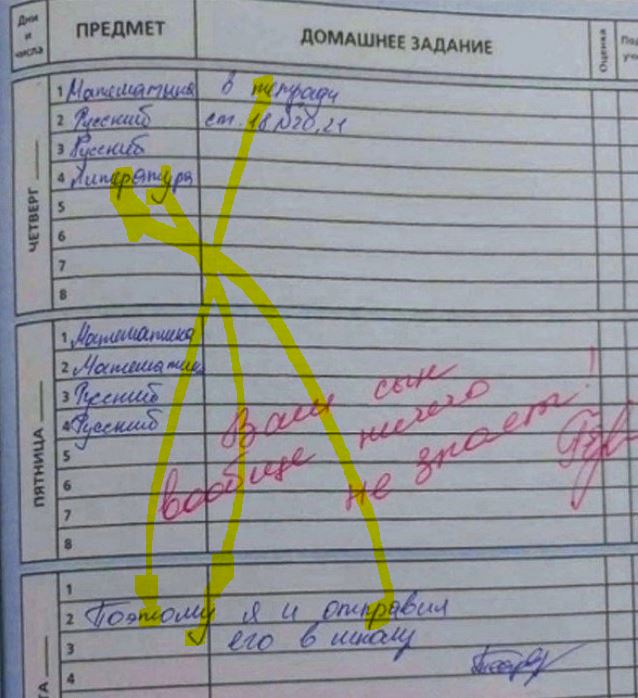 Дни и числа
ПРЕДМЕТ
ДОМАШНЕЕ ЗАДАНИЕ
Оценка
ЧЕТВЕРГ
1 Математика в тетради
2 Русский ст. 18 №20,21
3 Русский
4 Литература
5
6
7
8
ПЯТНИЦА
1 Математика
2 Математика
3 Русский
4 Русский
5
6
7
8
Ваш сын
вообще ничего
не знает!
1
2 Поэтому я и отправил
3 его в школу
4